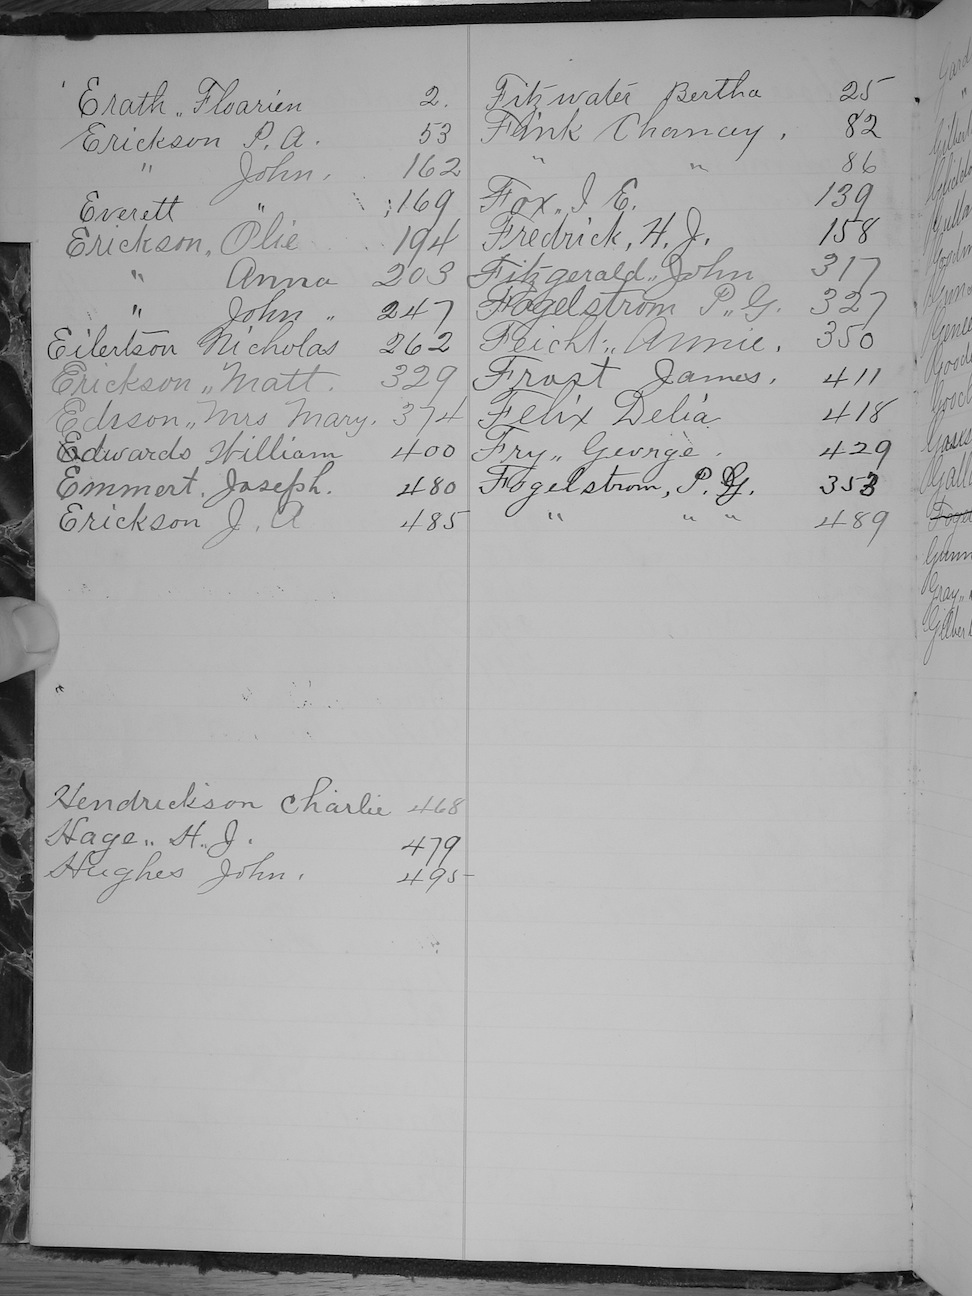 Erath,, Floarien 2.
Erickson P. A. 53
" John. 162
Everett " 169
Erickson,, Olie 194
" Anna 203
" John " 247
Eilertson Nicholas 262
Erickson,, Matt. 329
Edsson,, Mrs Mary. 374
Edwards William 400
Emmert. Joseph. 480
Erickson J. A 485
Hendrickson Charlie 468
Hage,, H. J. 479
Hughes John. 495
Fitzwater Bertha 25
Fink Chancey. 82
" " 86
Fox,, I E. 139
Fredrick, H. J. 158
Fitzgerald,, John 317
Fogelstrom P,, G. 327
Feicht,, Annie. 350
Frost James. 411
Felix Delia 418
Fry,, George. 429
Fogelstrom, P. G. 353
" " " 489